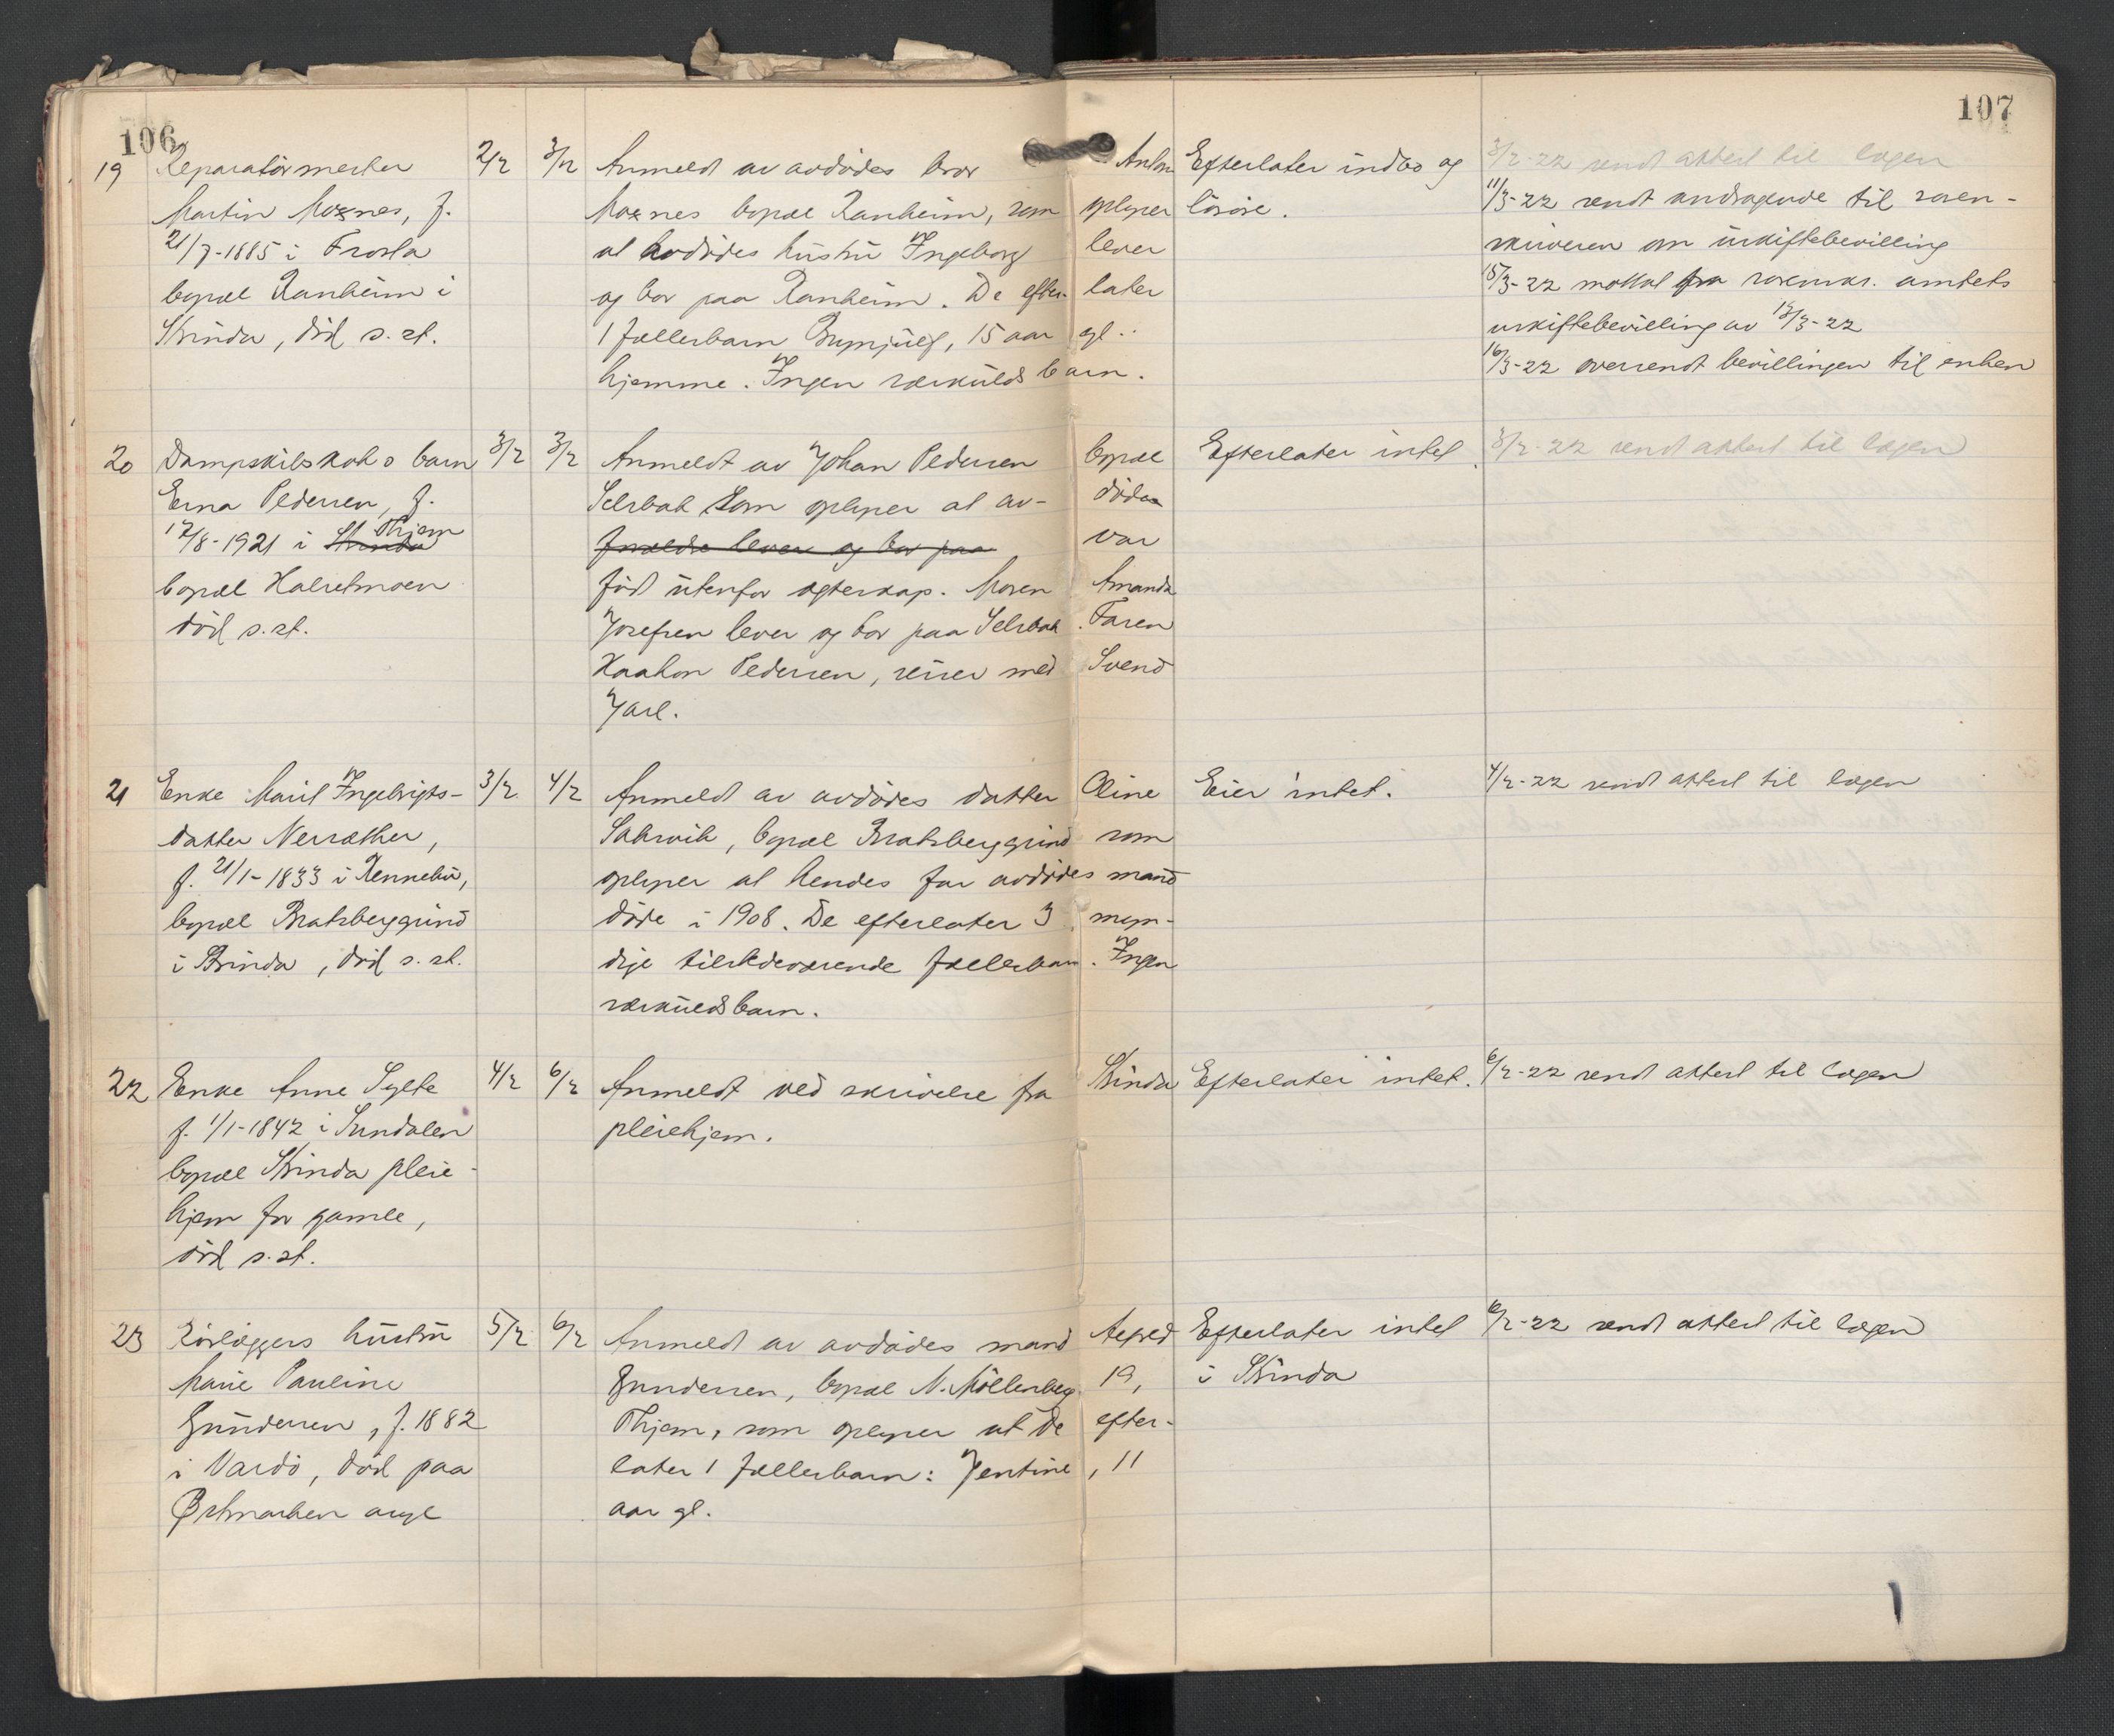 106
107
19 Reparatörmester 2/2 3/2 Anmeldt av avdödes bror Anton Efterlater indbo og 3/2-22 sendt attest til lagen
Martin Moxnes, f. Moxnes bopæl Ranheim, som oplyser lösöre. 11/3-22 sendt andragende til soren-
21/7-1885 i Frosta at avdödes hustru Ingeborg lever skriveren om uskiftebevilling
bopæl Ranheim i og bor paa Ranheim. De efter- later 15/3-22 mottat fra sorenskr. amtets
Strinda, död s. st. 1 fællesbarn Brynjulf, 15 aar gl. uskiftebevilling av 13/3-22
hjemme. Ingen særkuldsbarn. 16/3-22 oversendt bevillingen til enken
20 Dampskibskok s barn 3/2 3/2 Anmeldt av Johan Pedersen bopæl Efterlater intet. 3/2-22 sendt attest til lagen
Erna Pedersen, f. Selsbak som oplyser at av- döde
17/8-1921 i Strinda Thjem forældre lever og bor paa var
bopæl Halsetmoen född utenfor egteskap. Moren Amanda
död s. st. Josefsen lever og bor paa Selsbak. Faren
Haakon Pedersen, reiser med Svend
Jarl.
21 Enke Marit Ingebrigts- 3/2 4/2 Anmeldt av avdödes datter Oline Eier intet. 4/2-22 sendt attest til lagen
datter Nerræther, Sakrvik, bopæl Bratsberggrind som
f. 21/1-1833 i Rennebu, oplyser at hendes far avdödes mand
bopæl Bratsberggrind döde i 1908. De efterlater 3 myn-
i Strinda, död s. st. dige tilstedeværende fællesbarn. Ingen
særkuldsbarn.
22 Enke Anne Sylte 4/2 6/2 Anmeldt ved skrivelse fra Strinda Efterlater intet. 6/2-22 sendt attest til lagen
f. 1/1-1842 i Sundalen pleiehjem.
bopæl Strinda pleie-
hjem for gamle,
död s. st.
23 Rörlæggers hustru 5/2 6/2 Anmeldt av avdödes mand Alfred Efterlater intet 6/2-22 sendt attest til lagen
Marie Pauline Gundersen, bopæl N. Möllenberg 19, i Strinda
Gundersen, f. 1882 Thjem, som oplyser at de efter-
i Vardö, död paa later 1 fællesbarn: Jentine, 11
Østmarken asyl aar gl.